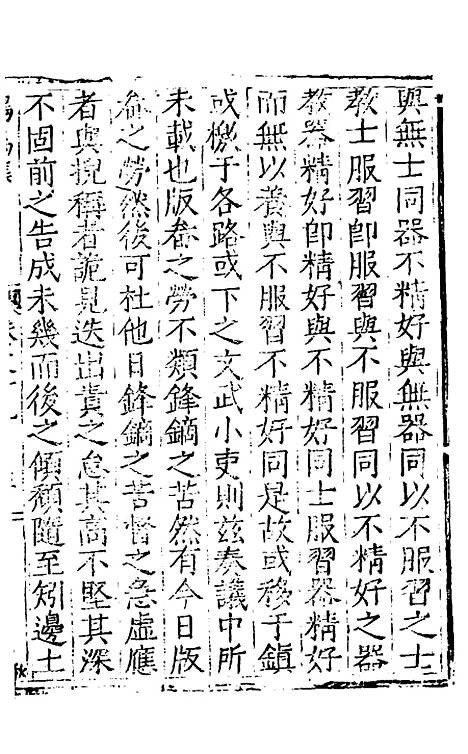 與無士同器不精好與無器同以不服習之士
教士服習即服習與不服習同以不精好之器
教器精好即精好與不精好同士服習器精好
而無以養與不服習不精好同是故或移于鎮
或檄于各路或下之文武小吏則兹奏議中所
未載也版畚之勞不類鋒鏑之苦然有今日版
畚之勞然後可杜他日鋒鏑之苦督之急虛應
者與挽稱者詭見迭出責之怠其高不堅其深
不固前之告成未幾而後之傾頽隨至矧邊土